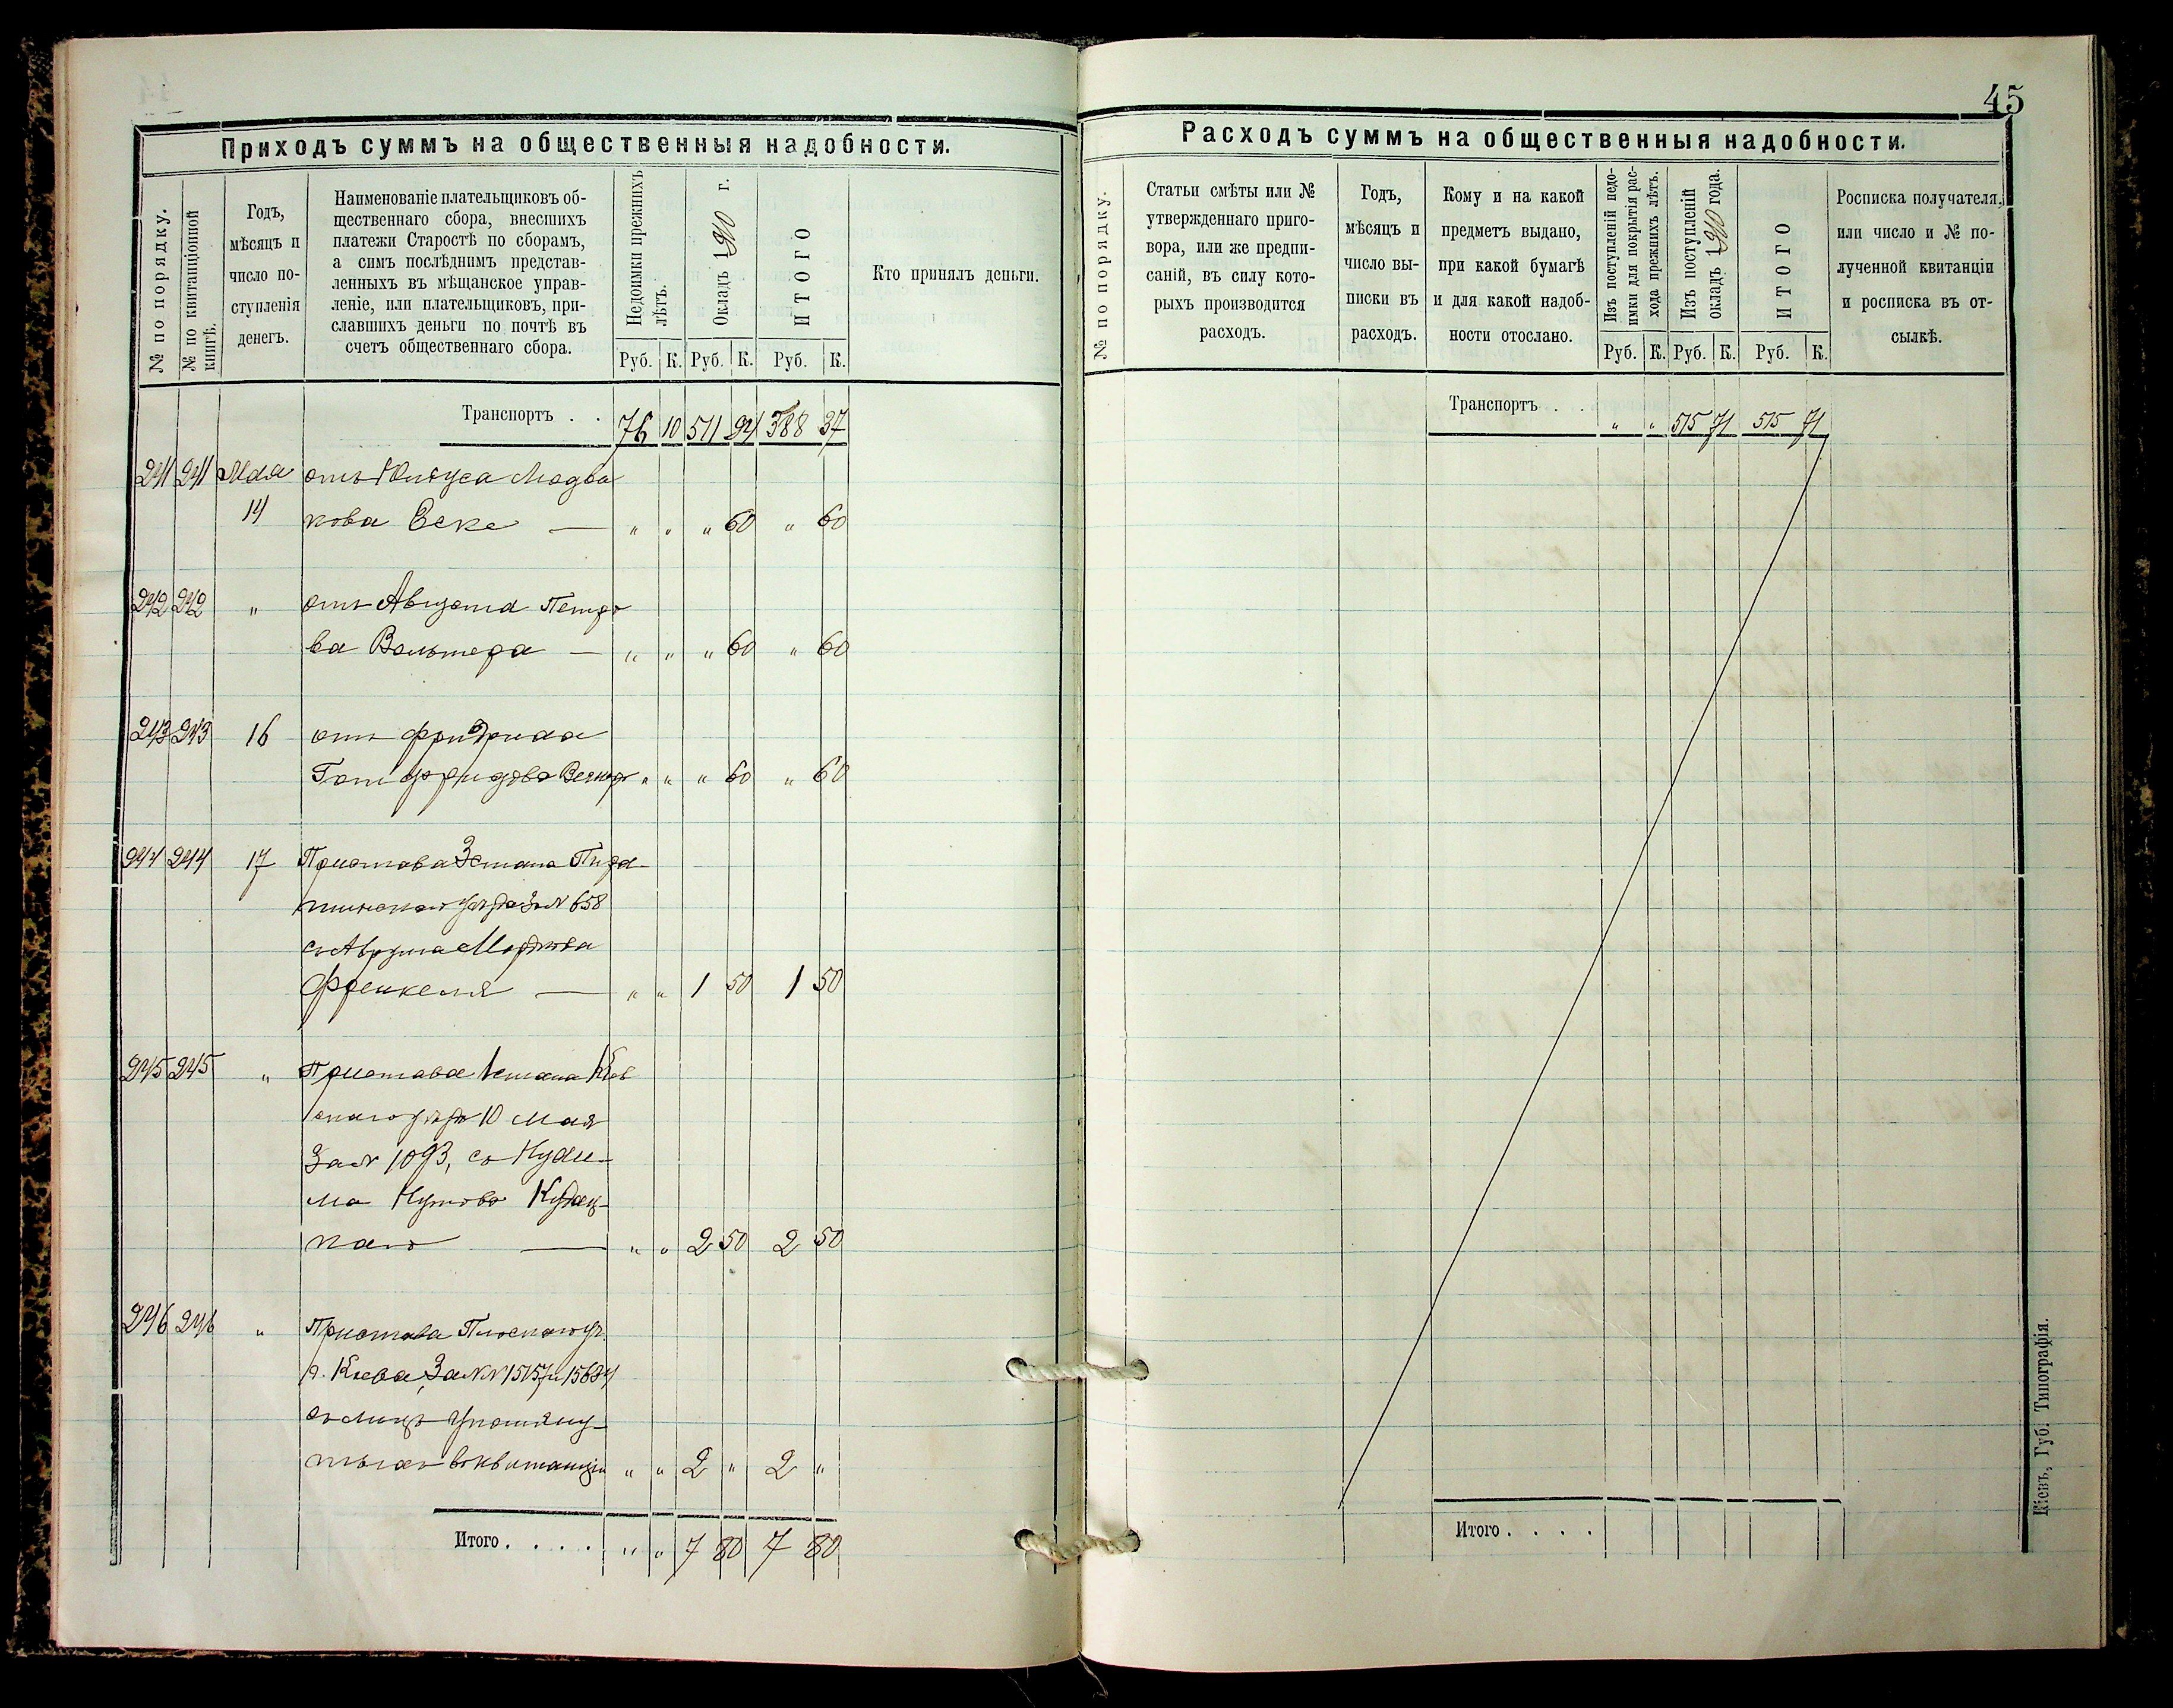 45
Приходъ суммъ на общественныя надобности.
№ по порядку.
№ по квитанціонной
книгѣ.
Годъ,
мѣсяцъ и
число по-
ступленія
денегъ.
Наименованіе плательщиковъ об-
щественнаго сбора, внесшихъ
платежи Старостѣ по сборамъ,
а симъ послѣднимъ представ-
ленныхъ въ мѣщанское управ-
леніе, или плательщиковъ, при-
славшихъ деньги по почтѣ въ
счетъ общественнаго сбора.
Недоимки прежнихъ
лѣтъ.
Окладъ 1910 г.
ИТОГО
Кто принялъ деньги.
Руб. К. Руб. К. Руб. К.
Транспортъ . . 76 10 511 94 588 37
241 241 Мая отъ Юліуса
14 кова Еске — " " " 60 " 60
242 242 " отъ Августа Петро
ва Вольтера — " " " 60 " 60
243 243 16 отъ Фридриха
Готфридова " " " 60 " 60
244 244 17 Пристава 3 стана
уѣзда за № 658
съ
Френкеля — " " 1 50 1 50
245 245 " Пристава 1 стана Кіев
скаго уѣзда 10 мая
за № 1093, съ
ма
каго — " " 2 50 2 50
246 246 " Пристава Плоскаго уч.
г. Кіева, за №№ 15157 и 15684
съ лицъ упомяну-
тыхъ въ квитанціи " " 2 " 2 "
Итого . . . . " " 7 80 7 80
Расходъ суммъ на общественныя надобности.
№ по порядку.
Статьи смѣты или №
утвержденнаго приго-
вора, или же предпи-
саній, въ силу кото-
рыхъ производится
расходъ.
Годъ,
мѣсяцъ и
число вы-
писки въ
расходъ.
Кому и на какой
предметъ выдано,
при какой бумагѣ
и для какой надоб-
ности отослано.
Изъ поступленій недо-
имки для покрытія рас-
хода прежнихъ лѣтъ.
Изъ поступленій
окладъ 1910 года.
ИТОГО
Росписка получателя,
или число и № по-
лученной квитанціи
и росписка въ от-
сылкѣ.
Руб. К. Руб. К. Руб. К.
Транспортъ . . . " " 515 71 515 71
Итого . . . .
Кіевъ, Губ. Типографія.